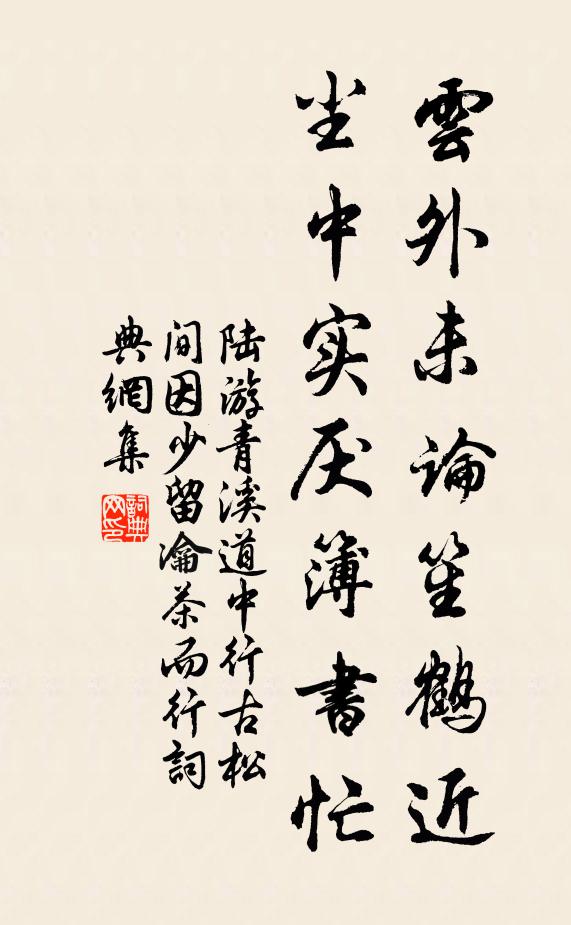 雲外未論笙鶴近
尘中实厌簿書忙
陆游青溪道中行古松
间因少留瀹茶而行詞
典網集
詞典
网印